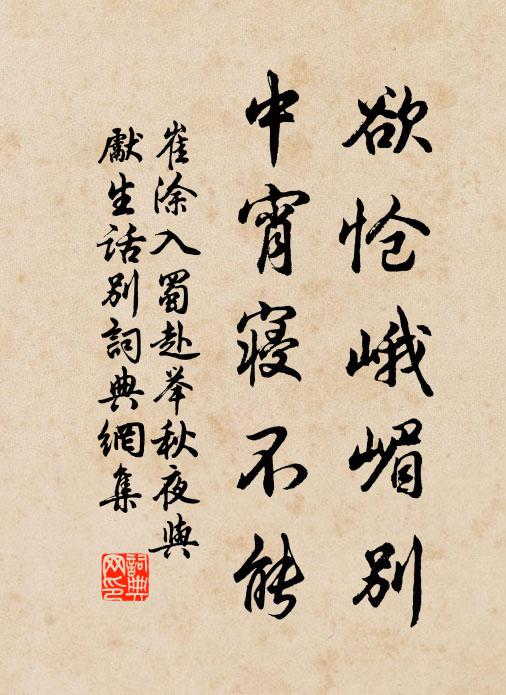 欲怆峨嵋別
中宵寝不能
崔涂入蜀赴举秋夜與
獻生话別詞典網集
詞典
网印